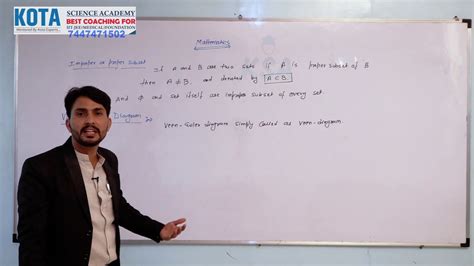 KOTA
SCIENCE ACADEMY
BEST COACHING FOR
IIT-JEE/MEDICAL/FOUNDATION
7447471502
Mathematics
Improper or proper Subset If A and B are two sets if A is proper subset of B
then A ≠ B. and denoted by A ⊂ B.
And Φ and set itself are improper subset of every set.
Diagram
Venn-Euler diagram simply called as Venn-diagram